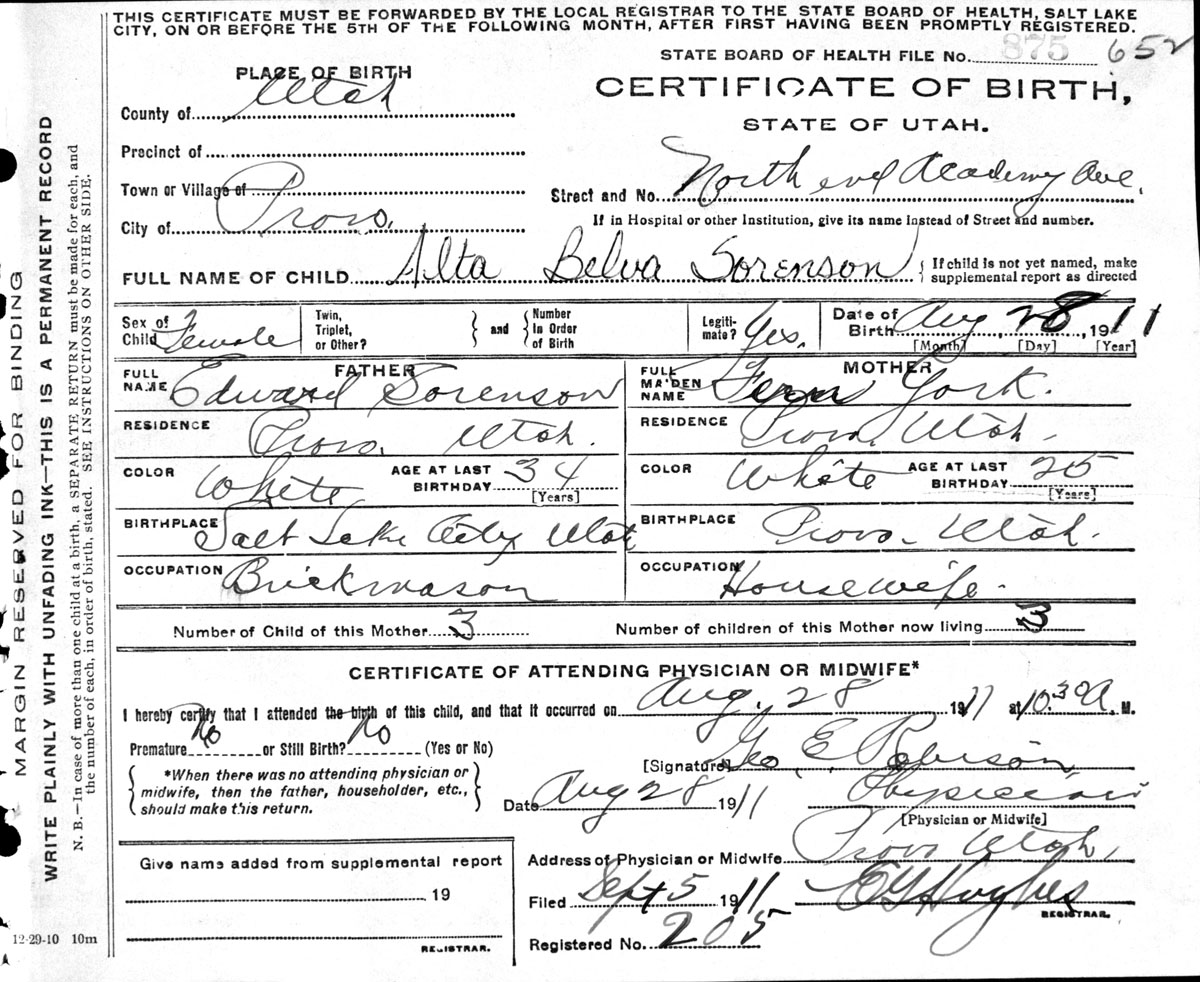 THIS CERTIFICATE MUST BE FORWARDED BY THE LOCAL REGISTRAR TO THE STATE BOARD OF HEALTH, SALT LAKE
CITY, ON OR BEFORE THE 5TH OF THE FOLLOWING MONTH, AFTER FIRST HAVING BEEN PROMPTLY REGISTERED.
STATE BOARD OF HEALTH FILE No. 875 652
PLACE OF BIRTH
CERTIFICATE OF BIRTH,
STATE OF UTAH.
County of Utah
Precinct of
Town or Village of
Street and No. North end Academy Ave.
City of Provo.
If in Hospital or other Institution, give its name instead of Street and number.
FULL NAME OF CHILD Alta Belva Sorenson { If child is not yet named, make
supplemental report as directed
Sex of Child Female
Twin, Triplet, or Other? } and { Number In Order of Birth
Legiti-mate? Yes.
Date of Birth Aug 28, 1911
[Month] [Day] [Year]
FATHER
FULL NAME Edward Sorenson
RESIDENCE Provo, Utah.
COLOR White AGE AT LAST BIRTHDAY 34 [Years]
BIRTHPLACE Salt Lake City Utah
OCCUPATION Brickmason
MOTHER
FULL MAIDEN NAME Fern York.
RESIDENCE Provo, Utah.
COLOR White AGE AT LAST BIRTHDAY 25 [Years]
BIRTHPLACE Provo. Utah.
OCCUPATION Housewife.
Number of Child of this Mother 3 Number of children of this Mother now living 3
CERTIFICATE OF ATTENDING PHYSICIAN OR MIDWIFE*
I hereby certify that I attended the birth of this child, and that it occurred on Aug. 28 1911 at 10.30 A. M.
Premature No or Still Birth? No (Yes or No)
{ *When there was no attending physician or
midwife, then the father, householder, etc.,
should make this return. }
[Signature] Geo. E. Robison,
Date Aug 28 1911 Physician
[Physician or Midwife]
Address of Physician or Midwife Provo Utah,
Filed Sept 5 1911 E G Hughes
REGISTRAR.
Registered No. 205
Give name added from supplemental report
19
REGISTRAR.
12-29-10 10m
MARGIN RESERVED FOR BINDING
WRITE PLAINLY WITH UNFADING INK—THIS IS A PERMANENT RECORD
N. B.—In case of more than one child at a birth, a SEPARATE RETURN must be made for each, and
the number of each, in order of birth, stated. SEE INSTRUCTIONS ON OTHER SIDE.